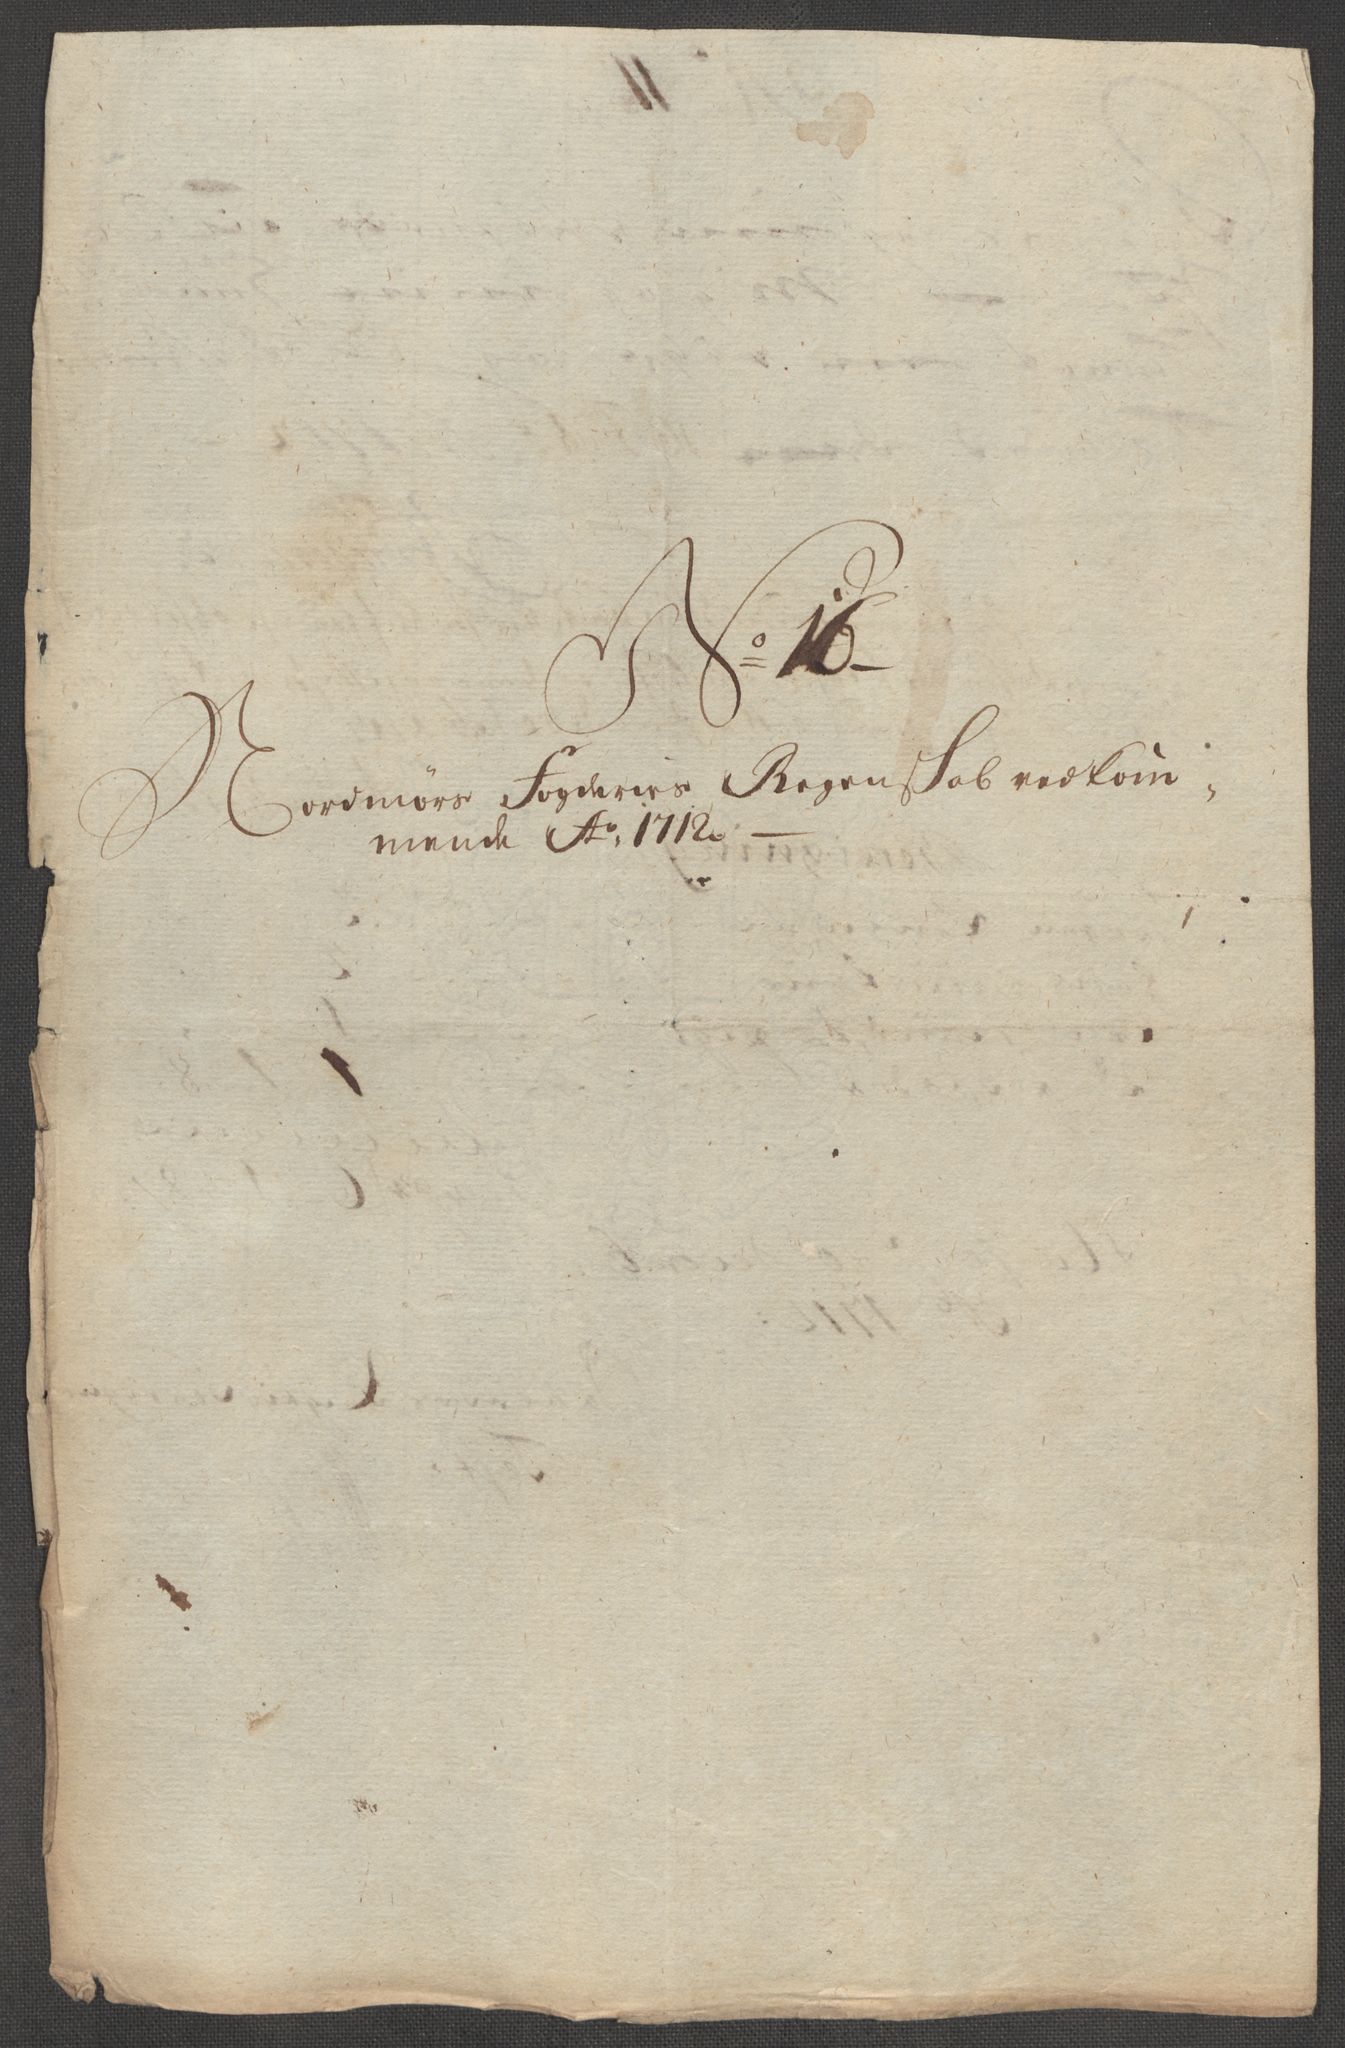 No 16
Nordmörs Fogderies Regenskab vedkom-
mende Ao, 1712.